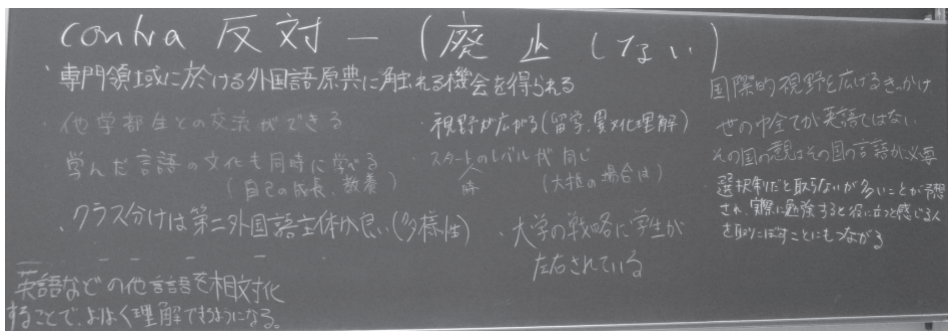 contra 反対 ー (廃止しない)
・専門領域に於ける外国語原典に触れる機会を得られる
・他学部生との交流ができる
学んだ言語の文化も同時に学べる
(自己の成長、教養)
・クラス分けは第二外国語主体が良い(多様性)
英語などの他言語を相対化
することで、よりよく理解できるようになる。
・視野が広がる(留学、異文化理解)
・スタートのレベルが同じ
時
(大抵の場合は)
・大学の戦略に学生が
左右されている
国際的視野を広げるきっかけ
世の中全てが英語ではない
その国の観はその国の言語が必要
・選択制だと取らない が多いことが予想
され、実際に勉強すると役に立つと感じる人
を取りこぼすことにもつながる